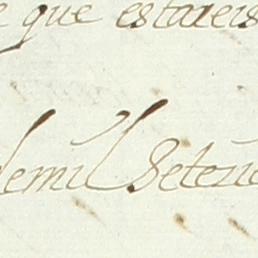 que estareis
demil Seteci